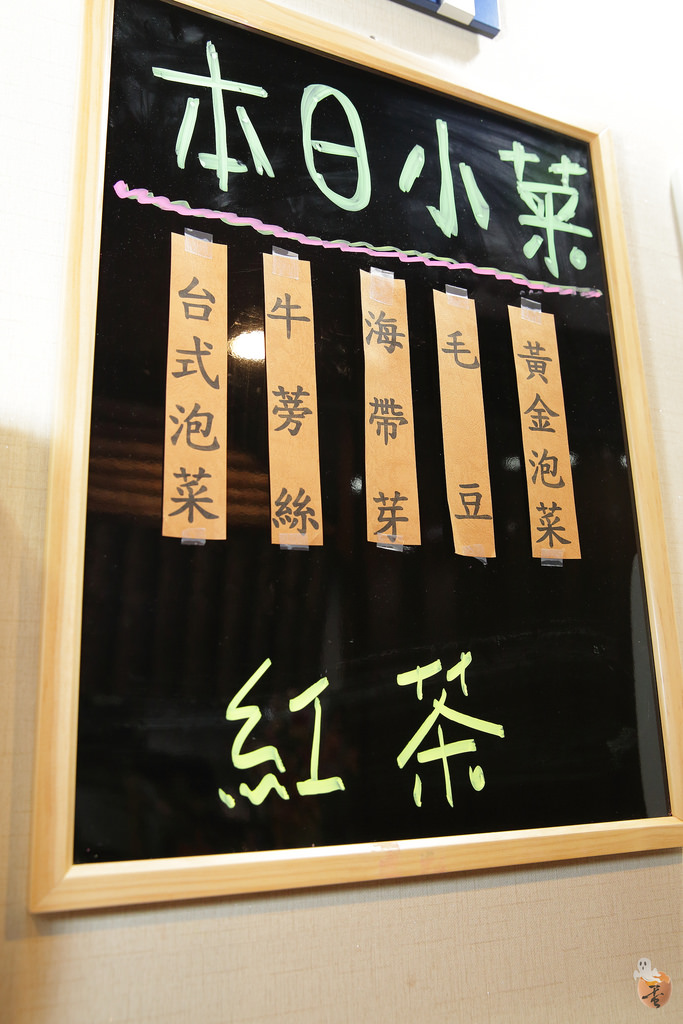 本日小菜
台式泡菜
牛蒡絲
海帶芽
毛豆
黃金泡菜
紅茶